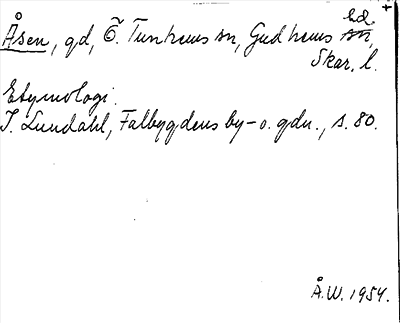 Åsen, gd, Ö. Tunhems sn, Gudhems hd,
Skar. l.
Etymologi.
I. Lundahl, Falbygdens by- o. gdn., s. 80.
Å.W. 1954.